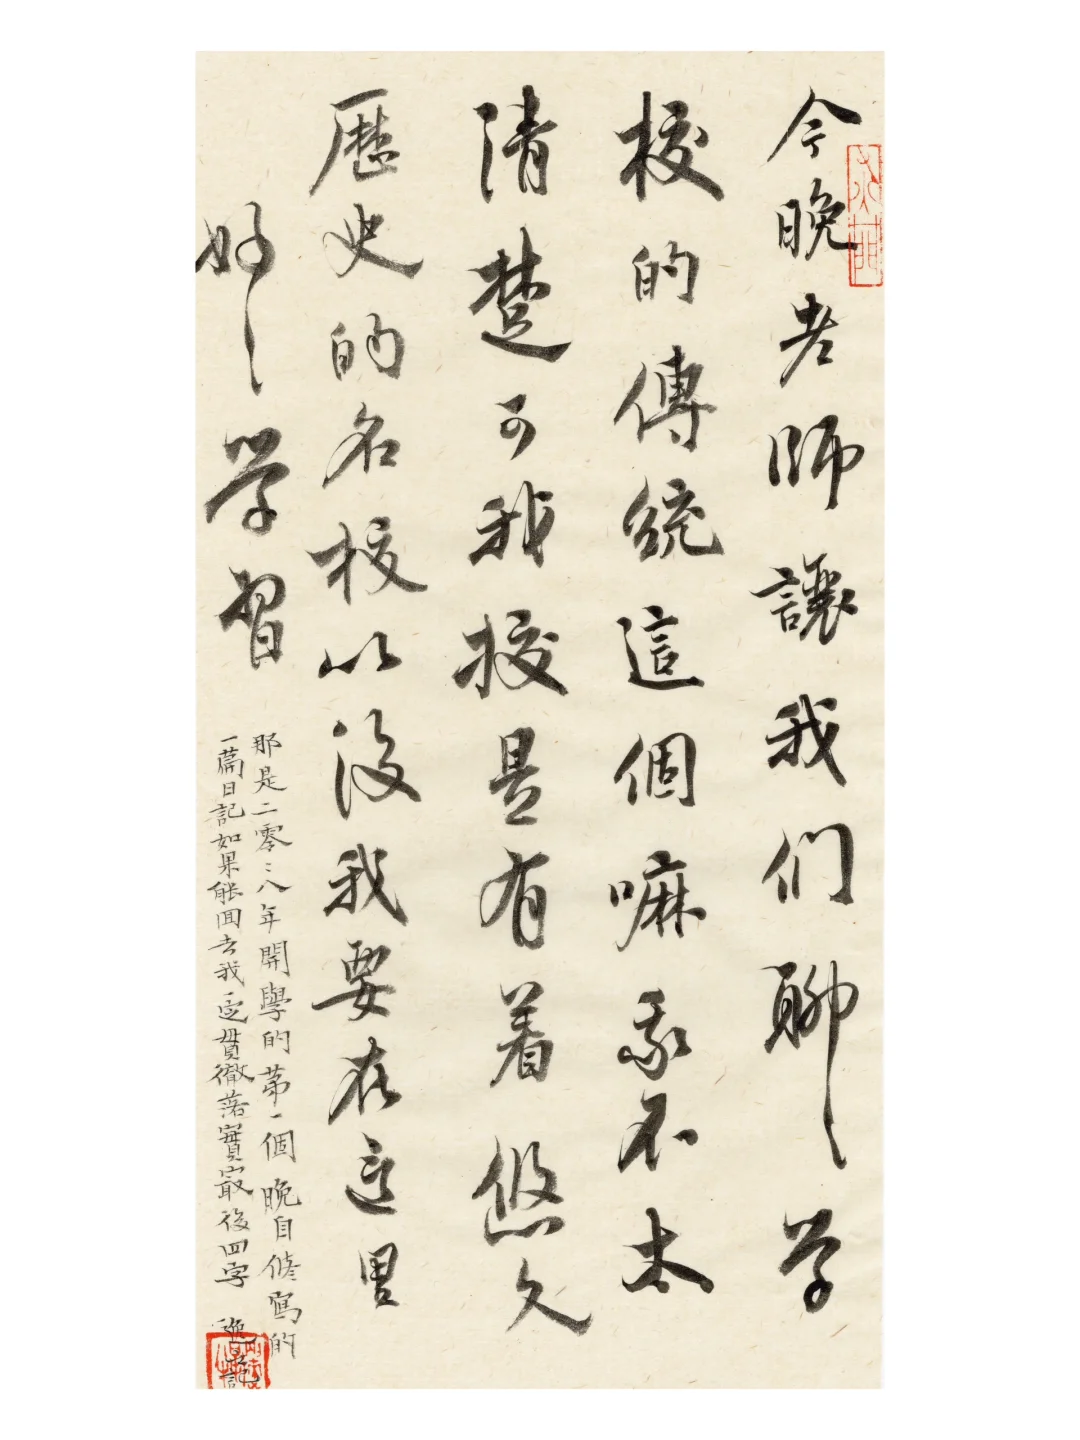 今晚老師讓我們聊〻学
校的傳統這個嘛我不太
清楚可我校是有着悠久
歷史的名校以後我要在这里
好〻学習
那是二零〻八年開學的第一個晚自修寫的
一篇日記如果能回去我一定貫徹落實最後四字